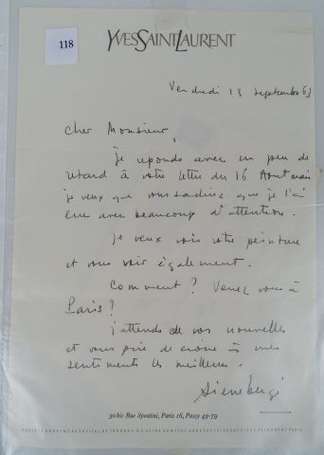 118
YVES SAINT LAURENT
Vendredi 13 septembre 63
Cher Monsieur,
je réponds avec un peu de
retard à votre lettre du 16 Août mais
je veux que vous sachiez que je l'ai
lue avec beaucoup d'attention.
Je veux voir votre peinture
et vous voir également.
Comment ? Venez vous à
Paris ?
J'attends de vos nouvelles
et vous prie de croire à mes
sentiments les meilleurs.
Pierre Bergé
30 bis Rue Spontini, Paris 16, Passy 43-79